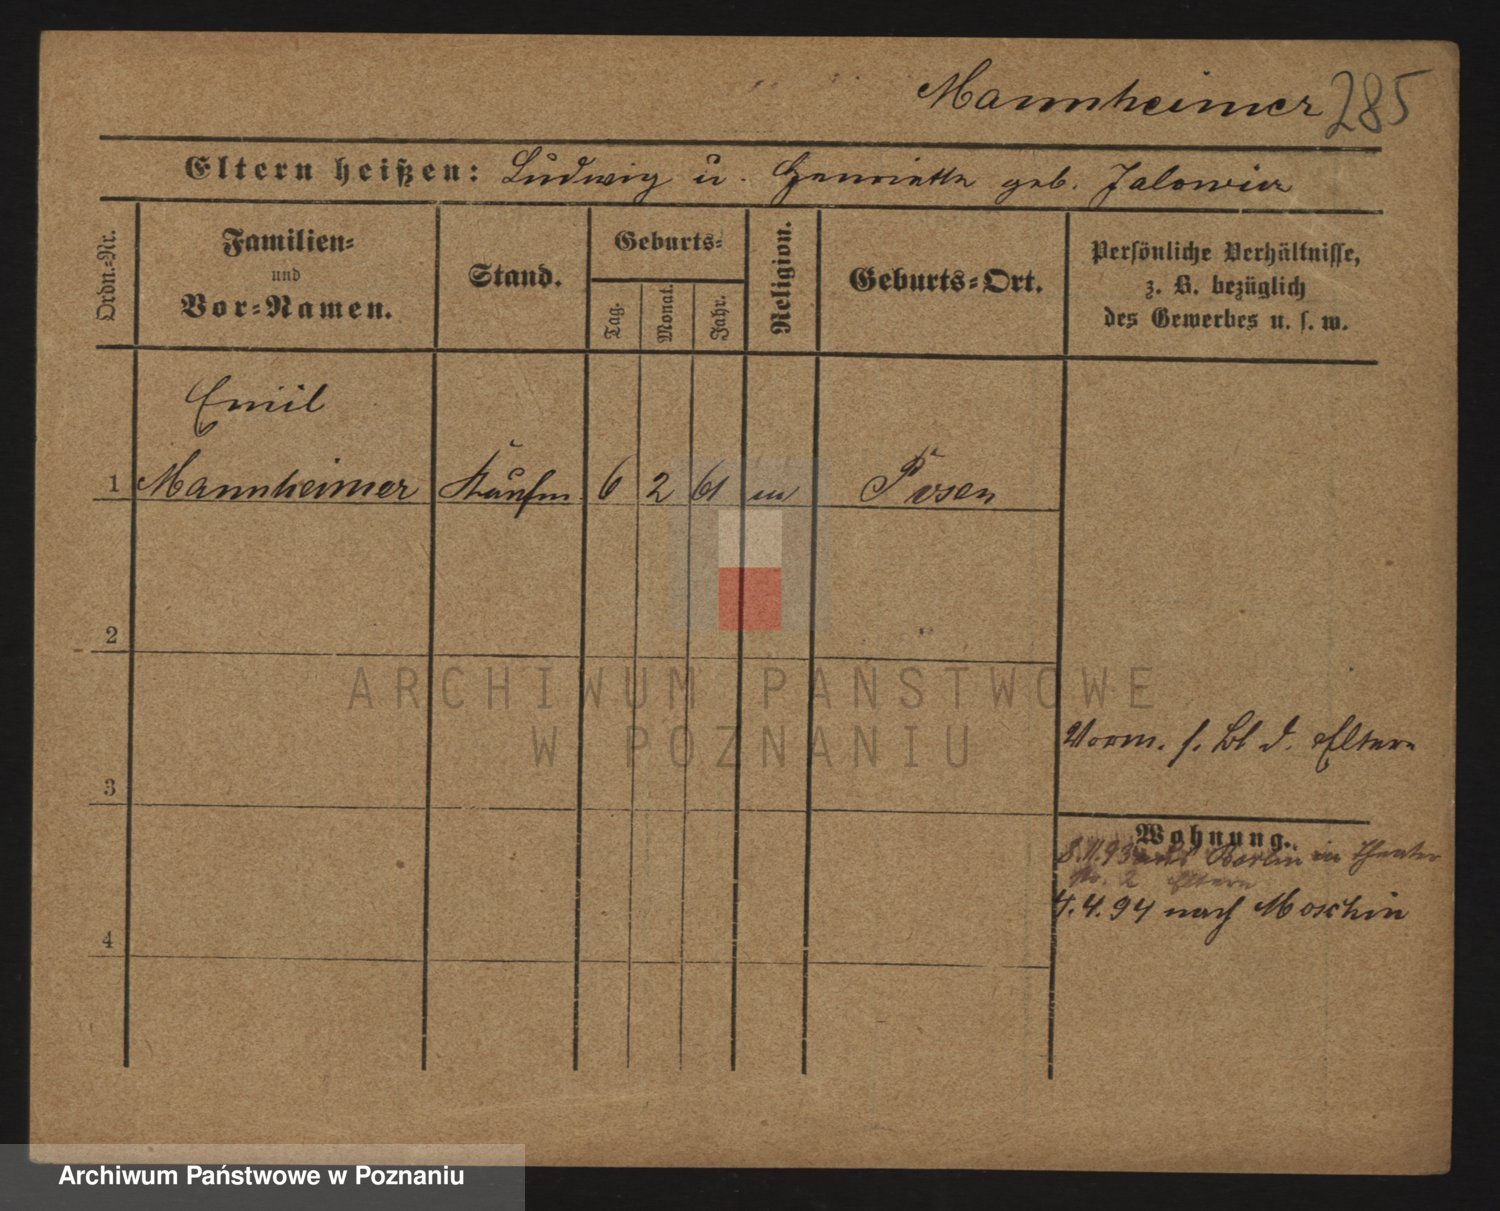 Mannheimer 285
Eltern heißen: Ludwig u. Henriette geb. Jalowicz
Ordn.=Nr.
Familien=
und
Vor=Namen.
Stand.
Geburts=
Tag.
Monat.
Jahr.
Religion.
Geburts=Ort.
Persönliche Verhältnisse,
z. B. bezüglich
des Gewerbes u. s. w.
Emil
1 Mannheimer Kaufm. 6 2 61 m Posen
2
3
4
Vorm. s. Bl d. Eltern
Wohnung.
8.11.93 aus Berlin in Theater
Nr. 2 Eltern
4.4.94 nach Moschin
ARCHIWUM PAŃSTWOWE
W POZNANIU
Archiwum Państwowe w Poznaniu